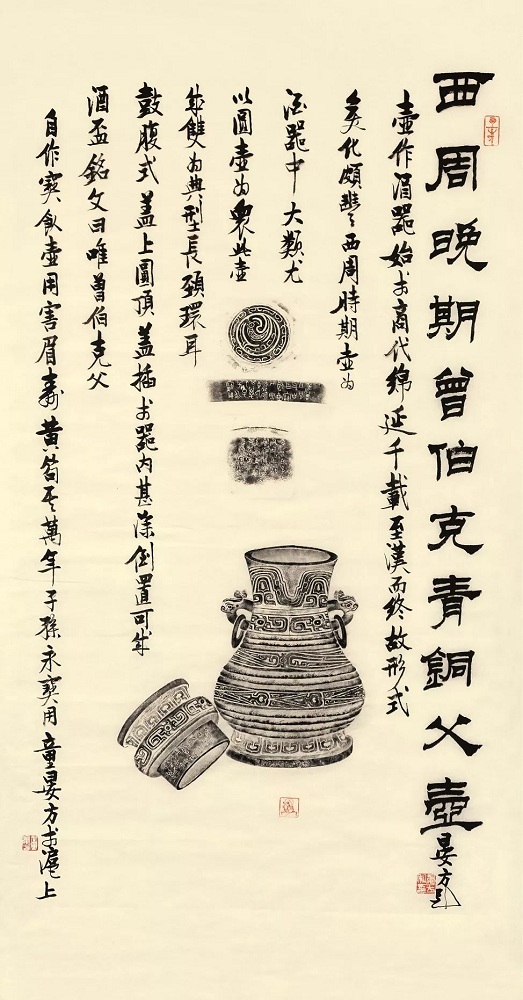 西周晚期曾伯克青銅父壺
晏方題
壺作酒器始於商代綿延千載至漢而終故形式
變化頗豐西周時期壺為
酒器中大類尤
以圓壺為眾此壺
成雙為典型長頸環耳
鼓腹式蓋上圓頂蓋插於器内甚深倒置可成
酒盃銘文曰唯曾伯克父
自作寶飲壺用害眉壽黃耇其萬年子孫永寶用童晏方於滬上